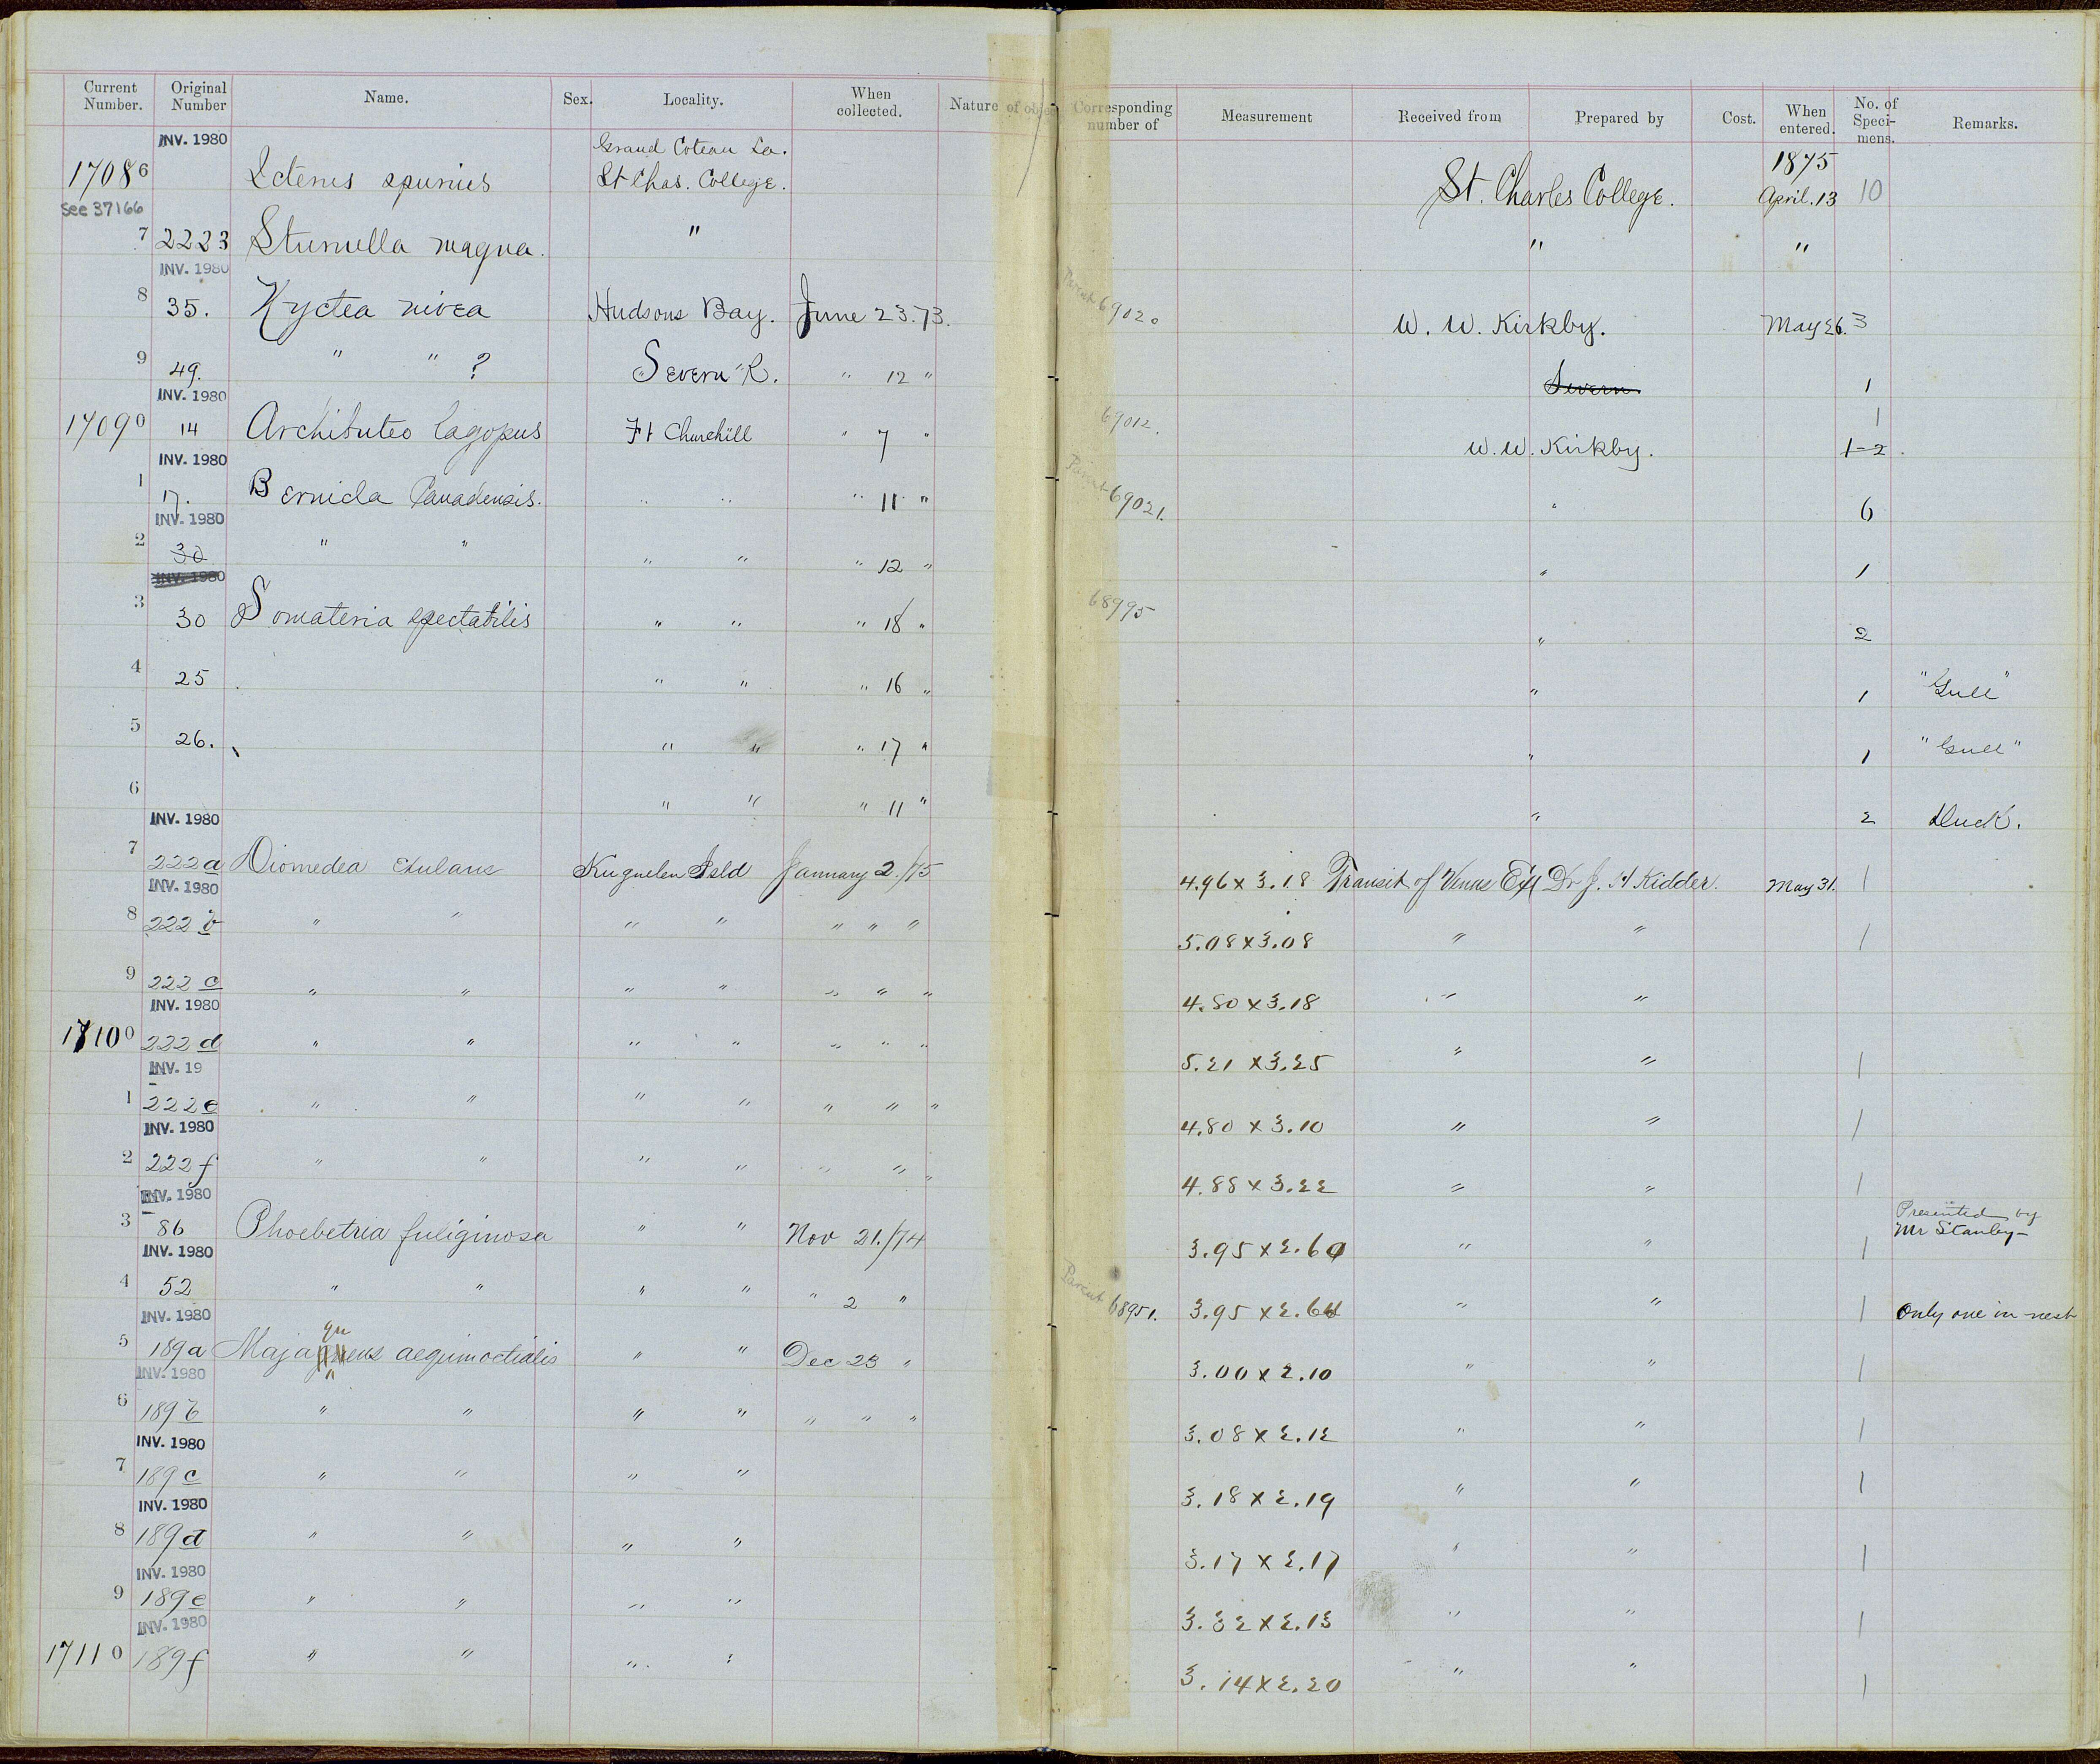 Current Number. Original Number Name. Sex. Locality. When collected. Nature of obje Corresponding number of Measurement Received from Prepared by Cost. When entered. No. of Speci-mens. Remarks.
INV. 1980 Grand Coteau La. 1875
17086 Icterus spurius St Chas. College. St. Charles College. April. 13 10
See 37166
7 2223 Sturnella magna. " " "
INV. 1980
8 35. Nyctea nivea Hudsons Bay. June 23.73. Parent 69020 W. W. Kirkby. May 26. 3
9 49. " " ? Severn R. " 12 " Severn 1
INV. 1980
17090 14 Archibuteo lagopus Ft Churchill " 7 " 69012. W. W. Kirkby. 1-2
INV. 1980
1 17. Bernicla Canadensis. " " " 11 " Parent 69021. " 6
INV. 1980
2 30 " " " " " 12 " " 1
INV. 1980
3 30 Somateria spectabilis " " " 18 " 68995 " 2
4 25 " " " 16 " " 1 "Gull"
5 26. " " " 17 " " 1 "Gull"
6 " " " 11 " " 2 Duck.
INV. 1980
7 222a Diomedea exulans Kuguelen Isld January 2./75 4.96 x 3.18 Transit of Venus Exp Dr J. H Kidder. May 31. 1
INV. 1980
8 222 b " " " " " " " 5.08 x 3.08 " " 1
9 222 c " " " " " " " 4.80 x 3.18 " "
INV. 1980
17100 222 d " " " " " " " 5.21 x 3.25 " " 1
INV. 19
1 222e " " " " " " " 4.80 x 3.10 " " 1
INV. 1980
2 222f " " " " " " " 4.88 x 3.22 " " 1
INV. 1980
3 86 Phoebetria fuliginosa " " Nov 21./74 3.95 x 2.60 " " 1 Presented by Mr Stanley-
INV. 1980
4 52 " " " " " 2 " Parent 68951. 3.95 x 2.64 " " 1 Only one in nest
INV. 1980
qu
5 189a Majaqueus aequinoctialis " " Dec 23 " 3.00 x 2.10 " " 1
INV. 1980
6 189b " " " " " " " 3.08 x 2.12 " " 1
INV. 1980
7 189c " " " " 3.18 x 2.19 " " 1
INV. 1980
8 189d " " " " 3.17 x 2.17 " " 1
INV. 1980
9 189e " " " " 3.32 x 2.13 " " 1
INV. 1980
17110 189f " " " " 3.14 x 2.20 " " 1